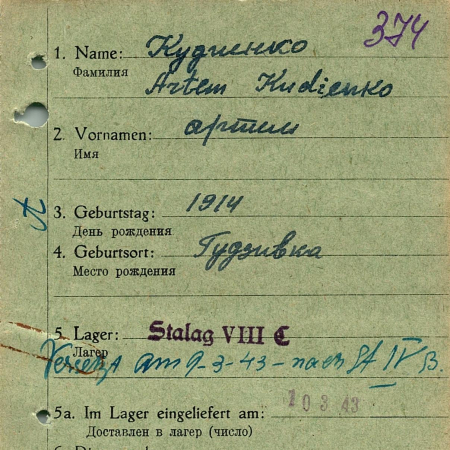 374
1. Name: Кудиенко
Фамилия
Artem Kudienko
2. Vornamen: артим
Имя
3. Geburtstag: 1914
День рождения
4. Geburtsort: Гудзивка
Место рождения
5. Lager: Stalag VIII C
Лагер
Versetzt am 9-3-43-nach St IV B.
5a. Im Lager eingeliefert am: 10 3 43
Доставлен в лагер (число)